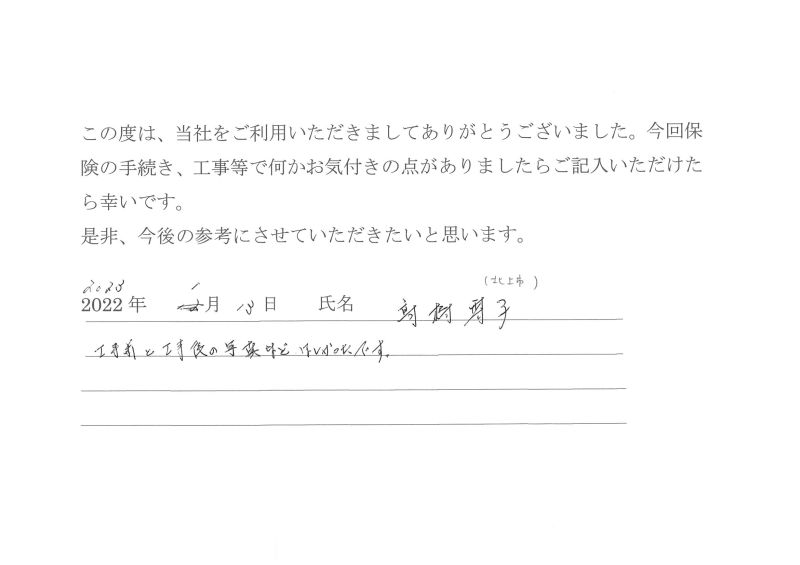 この度は、当社をご利用いただきましてありがとうございました。今回保
険の手続き、工事等で何かお気付きの点がありましたらご記入いただけた
ら幸いです。
是非、今後の参考にさせていただきたいと思います。
(北上市)
2023
2022年 1月 13日 氏名 子
工事前と工事後の写真 ほしかったです。